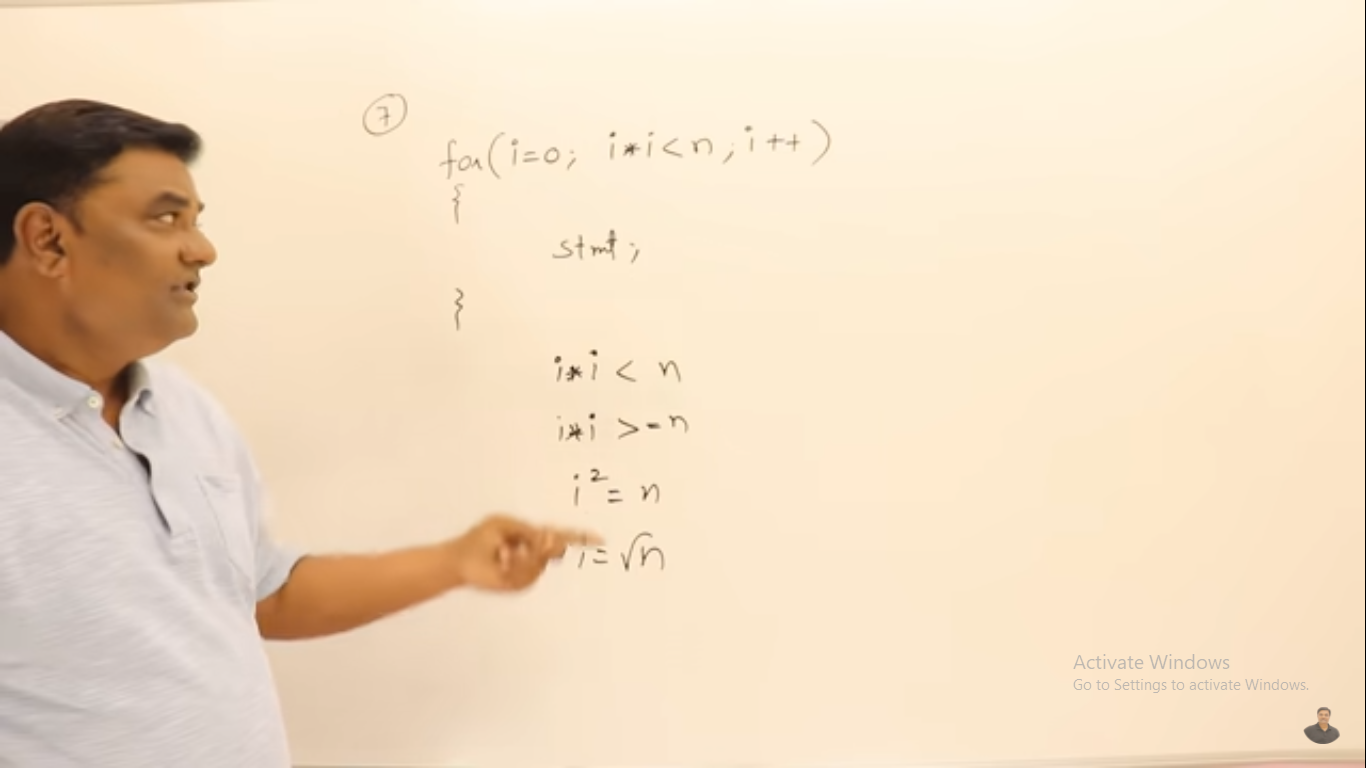 7
for(i=0; i*i<n; i++)
{
stmt;
}
i*i < n
i*i >=n
i²= n
i= √n
Activate Windows
Go to Settings to activate Windows.